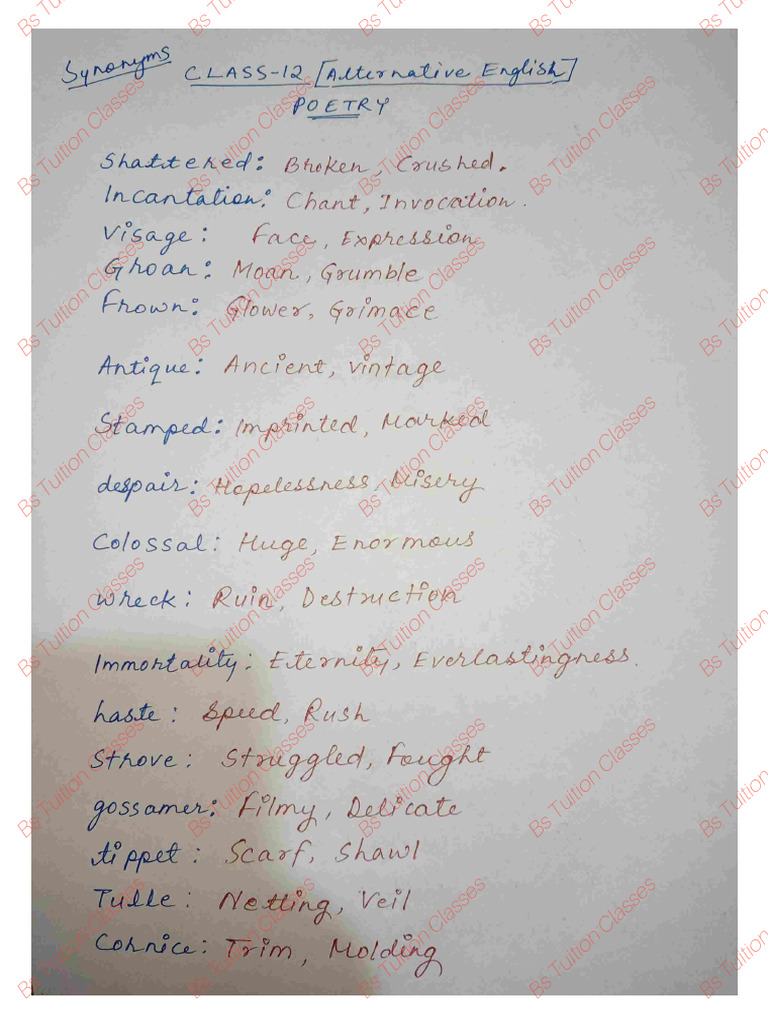 Synonyms
CLASS-12 [Alternative English]
POETRY
Shattered: Broken, Crushed.
Incantation: Chant, Invocation.
Visage: Face, Expression
Groan: Moan, Grumble
Frown: Glower, Grimace
Antique: Ancient, vintage
Stamped: Imprinted, Marked
despair: Hopelessness, Misery
Colossal: Huge, Enormous
wreck: Ruin, Destruction
Immortality: Eternity, Everlastingness.
haste: Speed, Rush
Strove: Struggled, Fought
gossamer: Filmy, Delicate
tippet: Scarf, Shawl
Tulle: Netting, Veil
Cornice: Trim, Molding
Bs Tuition Classes